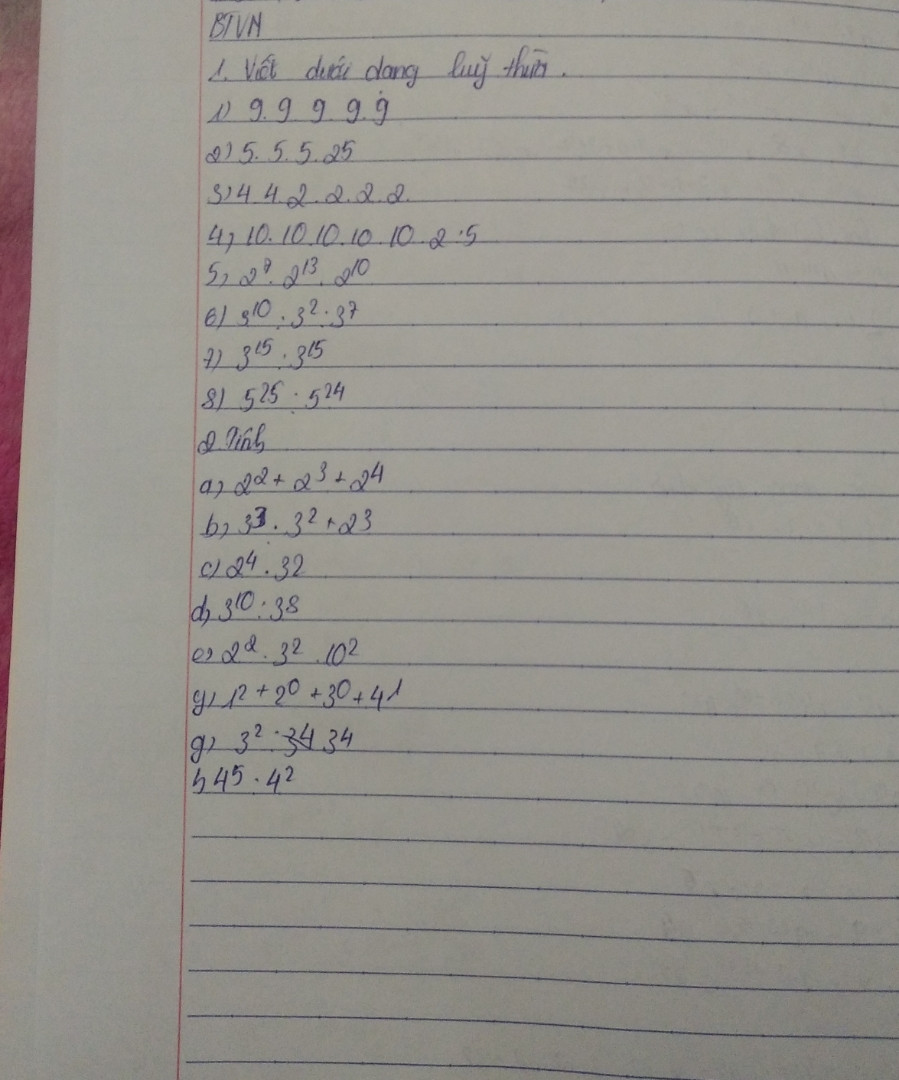 BTVN
1. Viết dưới dạng luỹ thừa.
1) 9. 9 9 9. 9
2) 5. 5. 5. 25
3) 4 4 2. 2. 2. 2.
4) 10. 10 10. 10 10. 2 . 5
5) 2⁷. 2¹³. 2¹⁰
6) 3¹⁰ : 3² . 3⁷
7) 3¹⁵ : 3¹⁵
8) 5²⁵ : 5²⁴
2. Tính
a) 2² + 2³ + 2⁴
b) 3³ . 3² + 2³
c) 2⁴ . 32
d) 3¹⁰ : 3⁸
e) 2² . 3² . 10²
g) 1² + 2⁰ + 3⁰ + 4¹
g) 3² . 3⁴
h 4⁵ . 4²